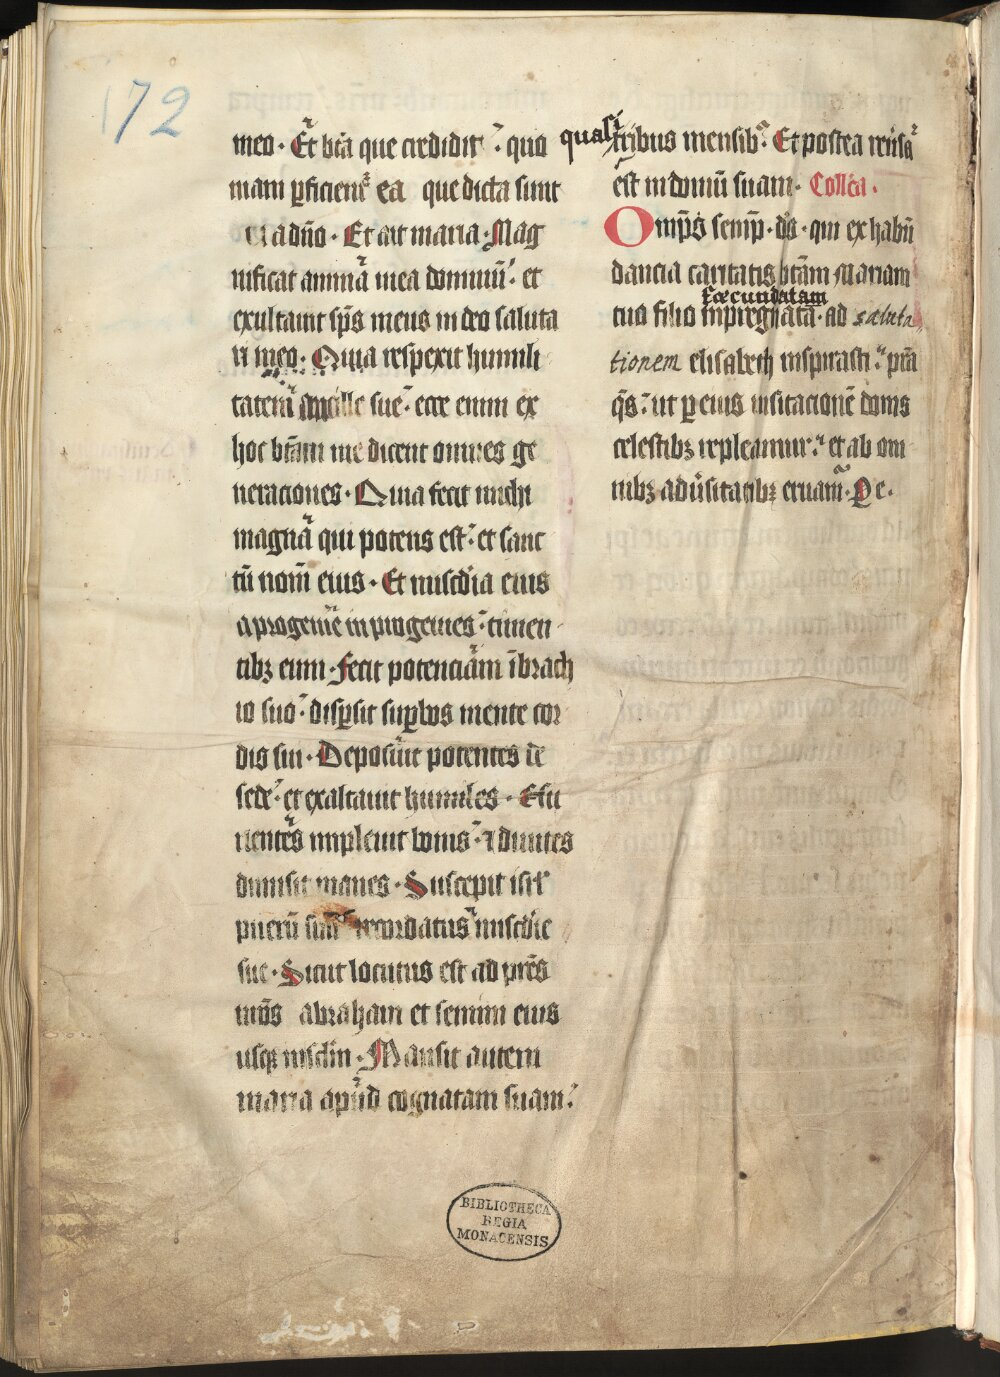 172
meo. Et bta que credidit: quo
niam ꝑficient᷑ ea que dicta sunt
ei a dño. Et ait maria. Mag
nificat anima mea dominū: et
exultavit sp̄s meus in deo saluta
ri meo. Quia respexit humili
tatem ancille sue: ecce enim ex
hoc btām me dicent omnes ge
nerationes. Quia fecit michi
magnā qui potens est: et sanc
tū nom̄ eius. Et misc̄dia eius
a progenie in progenies: timen
tibꝫ eum. Fecit potentiām ī brach
io suo: disꝑsit suꝑbos mente cor
dis sui. Deposuit potentes de
sede: et exaltavit humiles. Esu
rientes implevit bonis: ⁊ divites
dimisit inanes. Suscepit isrl
puerū suū recordatus misc̄die
sue. Sicut locutus est ad pr̄es
nr̄os abraham et semini eius
usqꝫ in sc̄lm. Mansit autem
maria apud cognatam suam:
quasi tribus mensibꝫ. Et postea reūsa
est in domū suam. Coll̄ca.
Omp̄s semp̄. ds̄. qui ex habū
dancia caritatis btām Mariam
fœcundatam
tuo filio impregnatā. ad saluta
tionem elisabeth inspirasti: p̄ta
q̄s: ut ꝑ eius visitacionē donis
celestibꝫ repleamur: et ab om
nibꝫ adūsitatibꝫ eruam̄. Ꝑ e.
BIBLIOTHECA
REGIA
MONACENSIS